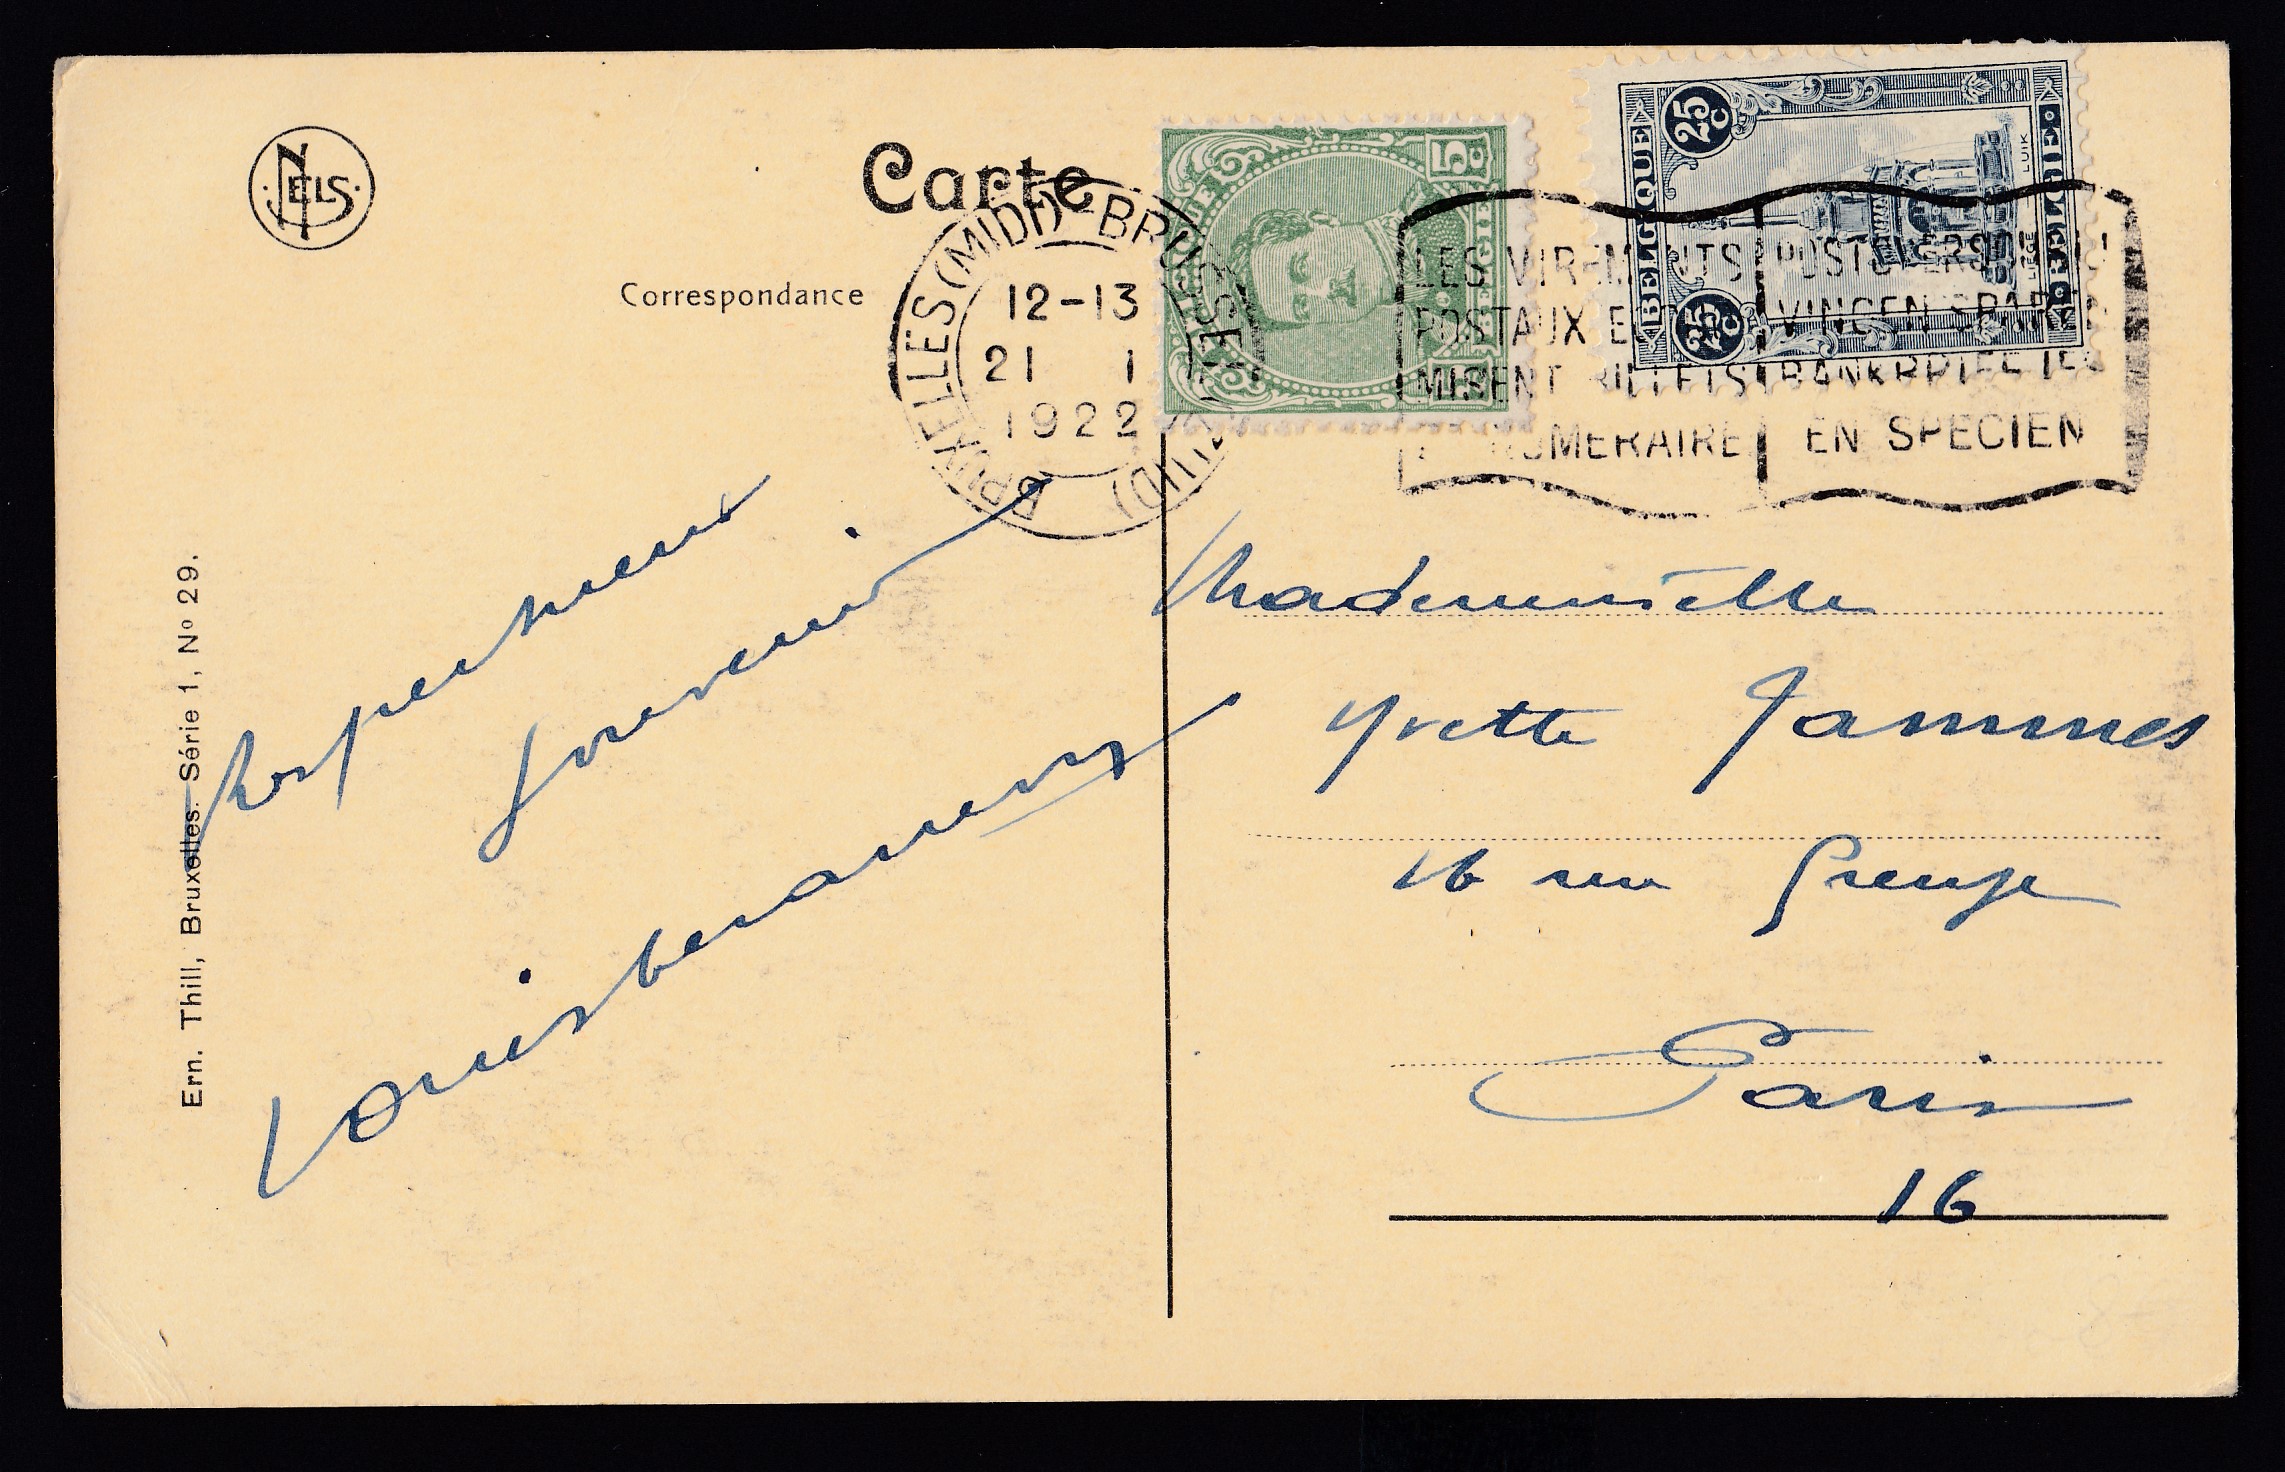 NELS
Carte
Correspondance
BRUXELLES (MIDI) BRUSSEL
12-13
21 1
1922
5c
BELGIE
BELGIQUE
25c
25c
BELGIE
LIÈGE LUIK
LES VIREMENTS
POSTAUX
BILLETS
NUMERAIRE
POST
VINGEN SPAREN
BANKBRIEFJES
EN SPECIEN
Respectueux
souvenir
Mademoiselle
Yvette Jammes
16 rue Greuze
Paris
16
Ern. Thill, Bruxelles. Série 1, No 29.